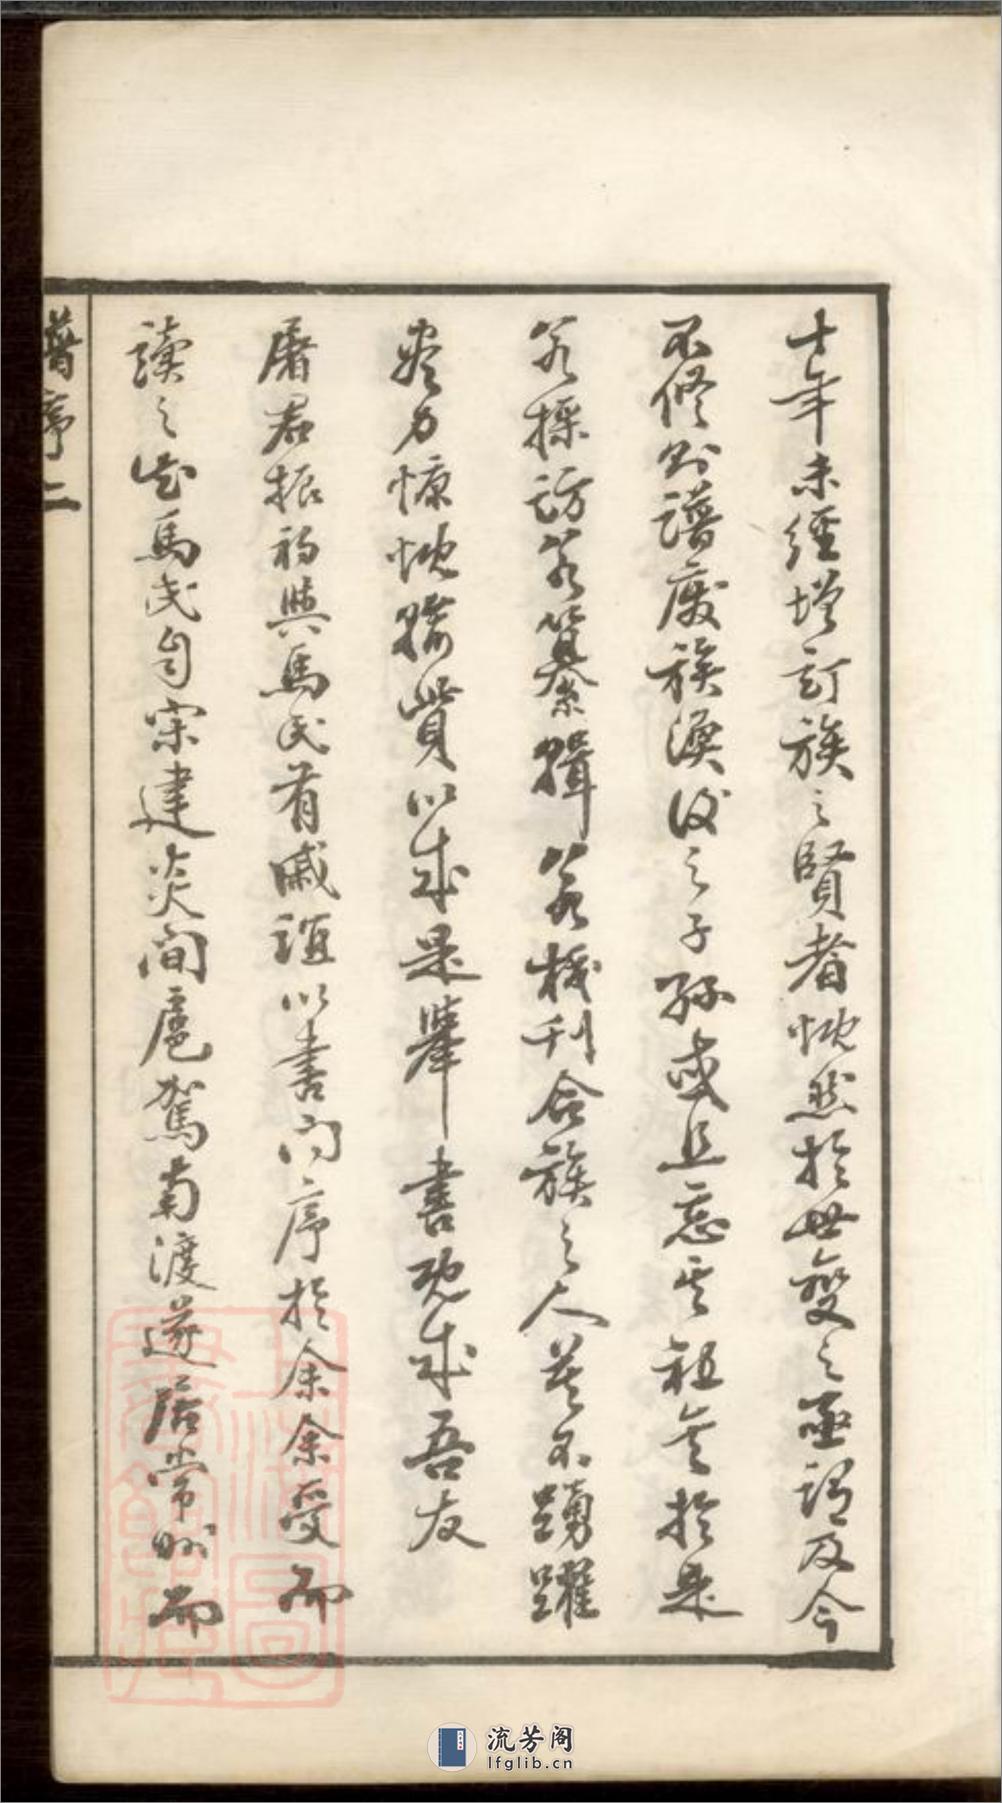 十年未經增訂族之賢者慨然於世變之亟謂及今
不修則譜廢族渙後之子孫或且忘其祖矣於是
若採訪若纂輯若校刊合族之人莫不踴躍
盡力慷慨輸貲以成是舉書既成吾友
屠君振初與馬氏有戚誼以書問序於余余受而
讀之知馬氏自宋建炎間扈駕南渡遂居常州而
譜序二
上海圖書館藏
流芳阁
lfglib.cn